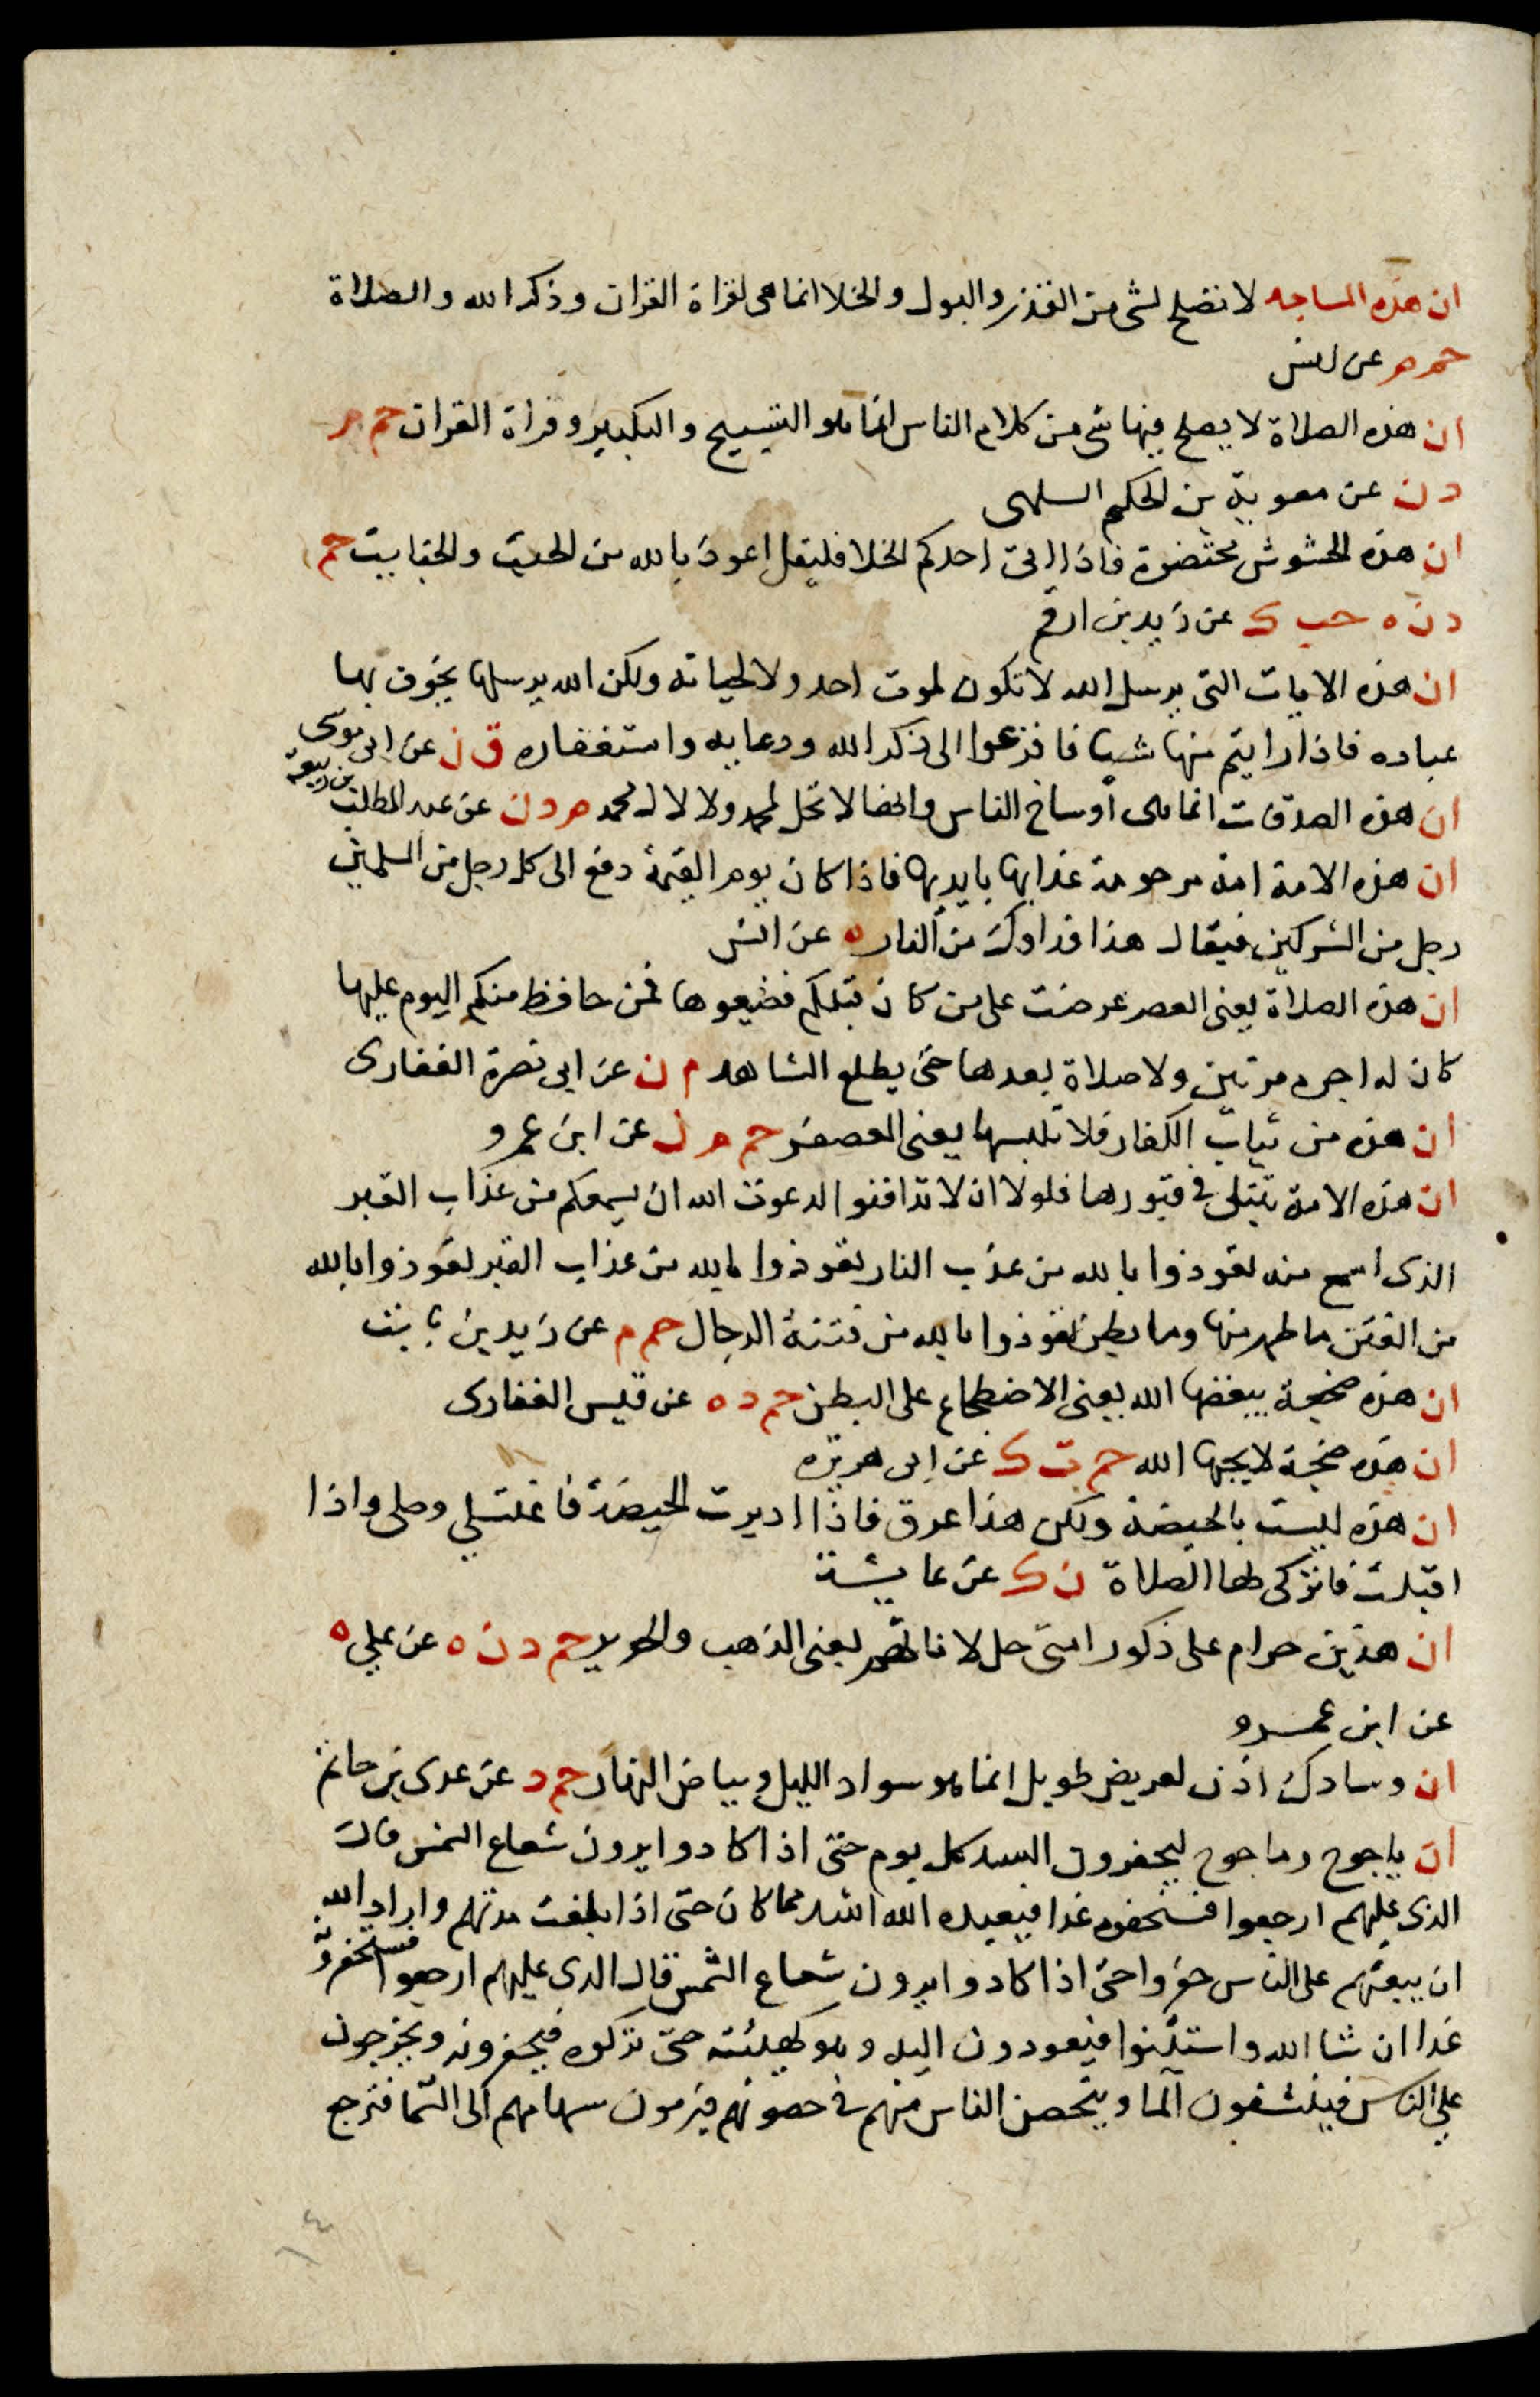 ان هذه المساجد لا تصلح لشى من القذر والبول والخلا انما هى لقراة القران وذكر الله والصلاة
حم م عن انس
ان هذه الصلاة لا يصلح فيها شى من كلام الناس انما هو التسبيح والتكبير وقراة القران حم م
د ن عن معوية بن الحكم السلمى
ان هذه الحشوش محتضرة فاذا اتى احدكم الخلا فليقل اعوذ بالله من الخبث والخبايث حم
د ن ه حب ك عن زيد بن ارقم
ان هذه الايات التى يرسل الله لا تكون لموت احد ولا لحياته ولكن الله يرسلها يخوف بها
عباده فاذا رايتم منها شيا فافزعوا الى ذكر الله ودعايه واستغفاره ق ن عن ابى موسى
ان هذه الصدقات انما هى اوساخ الناس وانها لا تحل لمحمد ولا لال محمد م د ن عن عبد المطلب بن ربيعة
ان هذه الامة امة مرحومة عذابها بايديها فاذا كان يوم القيمة دفع الى كل رجل من المسلمين
رجل من المشركين فيقال هذا فداوك من النار ه عن انس
ان هذه الصلاة يعنى العصر عرضت على من كان قبلكم فضيعوها فمن حافظ منكم اليوم عليها
كان له اجره مرتين ولا صلاة بعدها حتى يطلع الشاهد م ن عن ابى نصرة الغفارى
ان هذه من ثياب الكفار فلا تلبسها يعنى المعصفر حم م ن عن ابن عمرو
ان هذه الامة تبتلى فى قبورها فلولا ان لا تدافنوا لدعوت الله ان يسمعكم من عذاب القبر
الذى اسمع منه تعوذوا بالله من عذب النار تعوذوا بالله من عذاب القبر تعوذوا بالله
من الفتن ما ظهر منها وما بطن تعوذوا بالله من فتنة الدجال حم م عن زيد بن ثابت
ان هذه ضجعة يبغضها الله يعنى الاضطجاع على البطن حم د ه عن قيس الغفارى
ان هذه ضجعة لا يحبها الله حم ت ك عن ابى هريره
ان هذه ليست بالحيضة ولكن هذا عرق فاذا ادبرت الحيضة فاغتسلي وصلى واذا
اقبلت فاتركى لها الصلاة ن ك عن عايشة
ان هذين حرام على ذكور امتى حل لاناثهم يعنى الذهب والحرير حم د ن ه عن علي ه
عن ابن عمرو
ان وسادك اذن لعريض طويل انما هو سواد الليل وبياض النهار حم د عن عدى بن حاتم
ان ياجوج وماجوج ليحفرون السد كل يوم حتى اذا كادوا يرون شعاع الشمس قال
الذى عليهم ارجعوا فستحفرونه غدا فيعيده الله اشد مما كان حتى اذا بلغت مدتهم واراد الله
ان يبعثهم على الناس حفروا حتى اذا كادوا يرون شعاع الشمس قال الذى عليهم ارجعوا فستحفرونه
غدا ان شا الله واستثنوا فيعودون اليه وهو كهيئته حتى تركوه فيحفرونه ويخرجون
على الناس فينشفون الما ويتحصن الناس منهم فى حصونهم فيرمون سهامهم الى السما فترجع